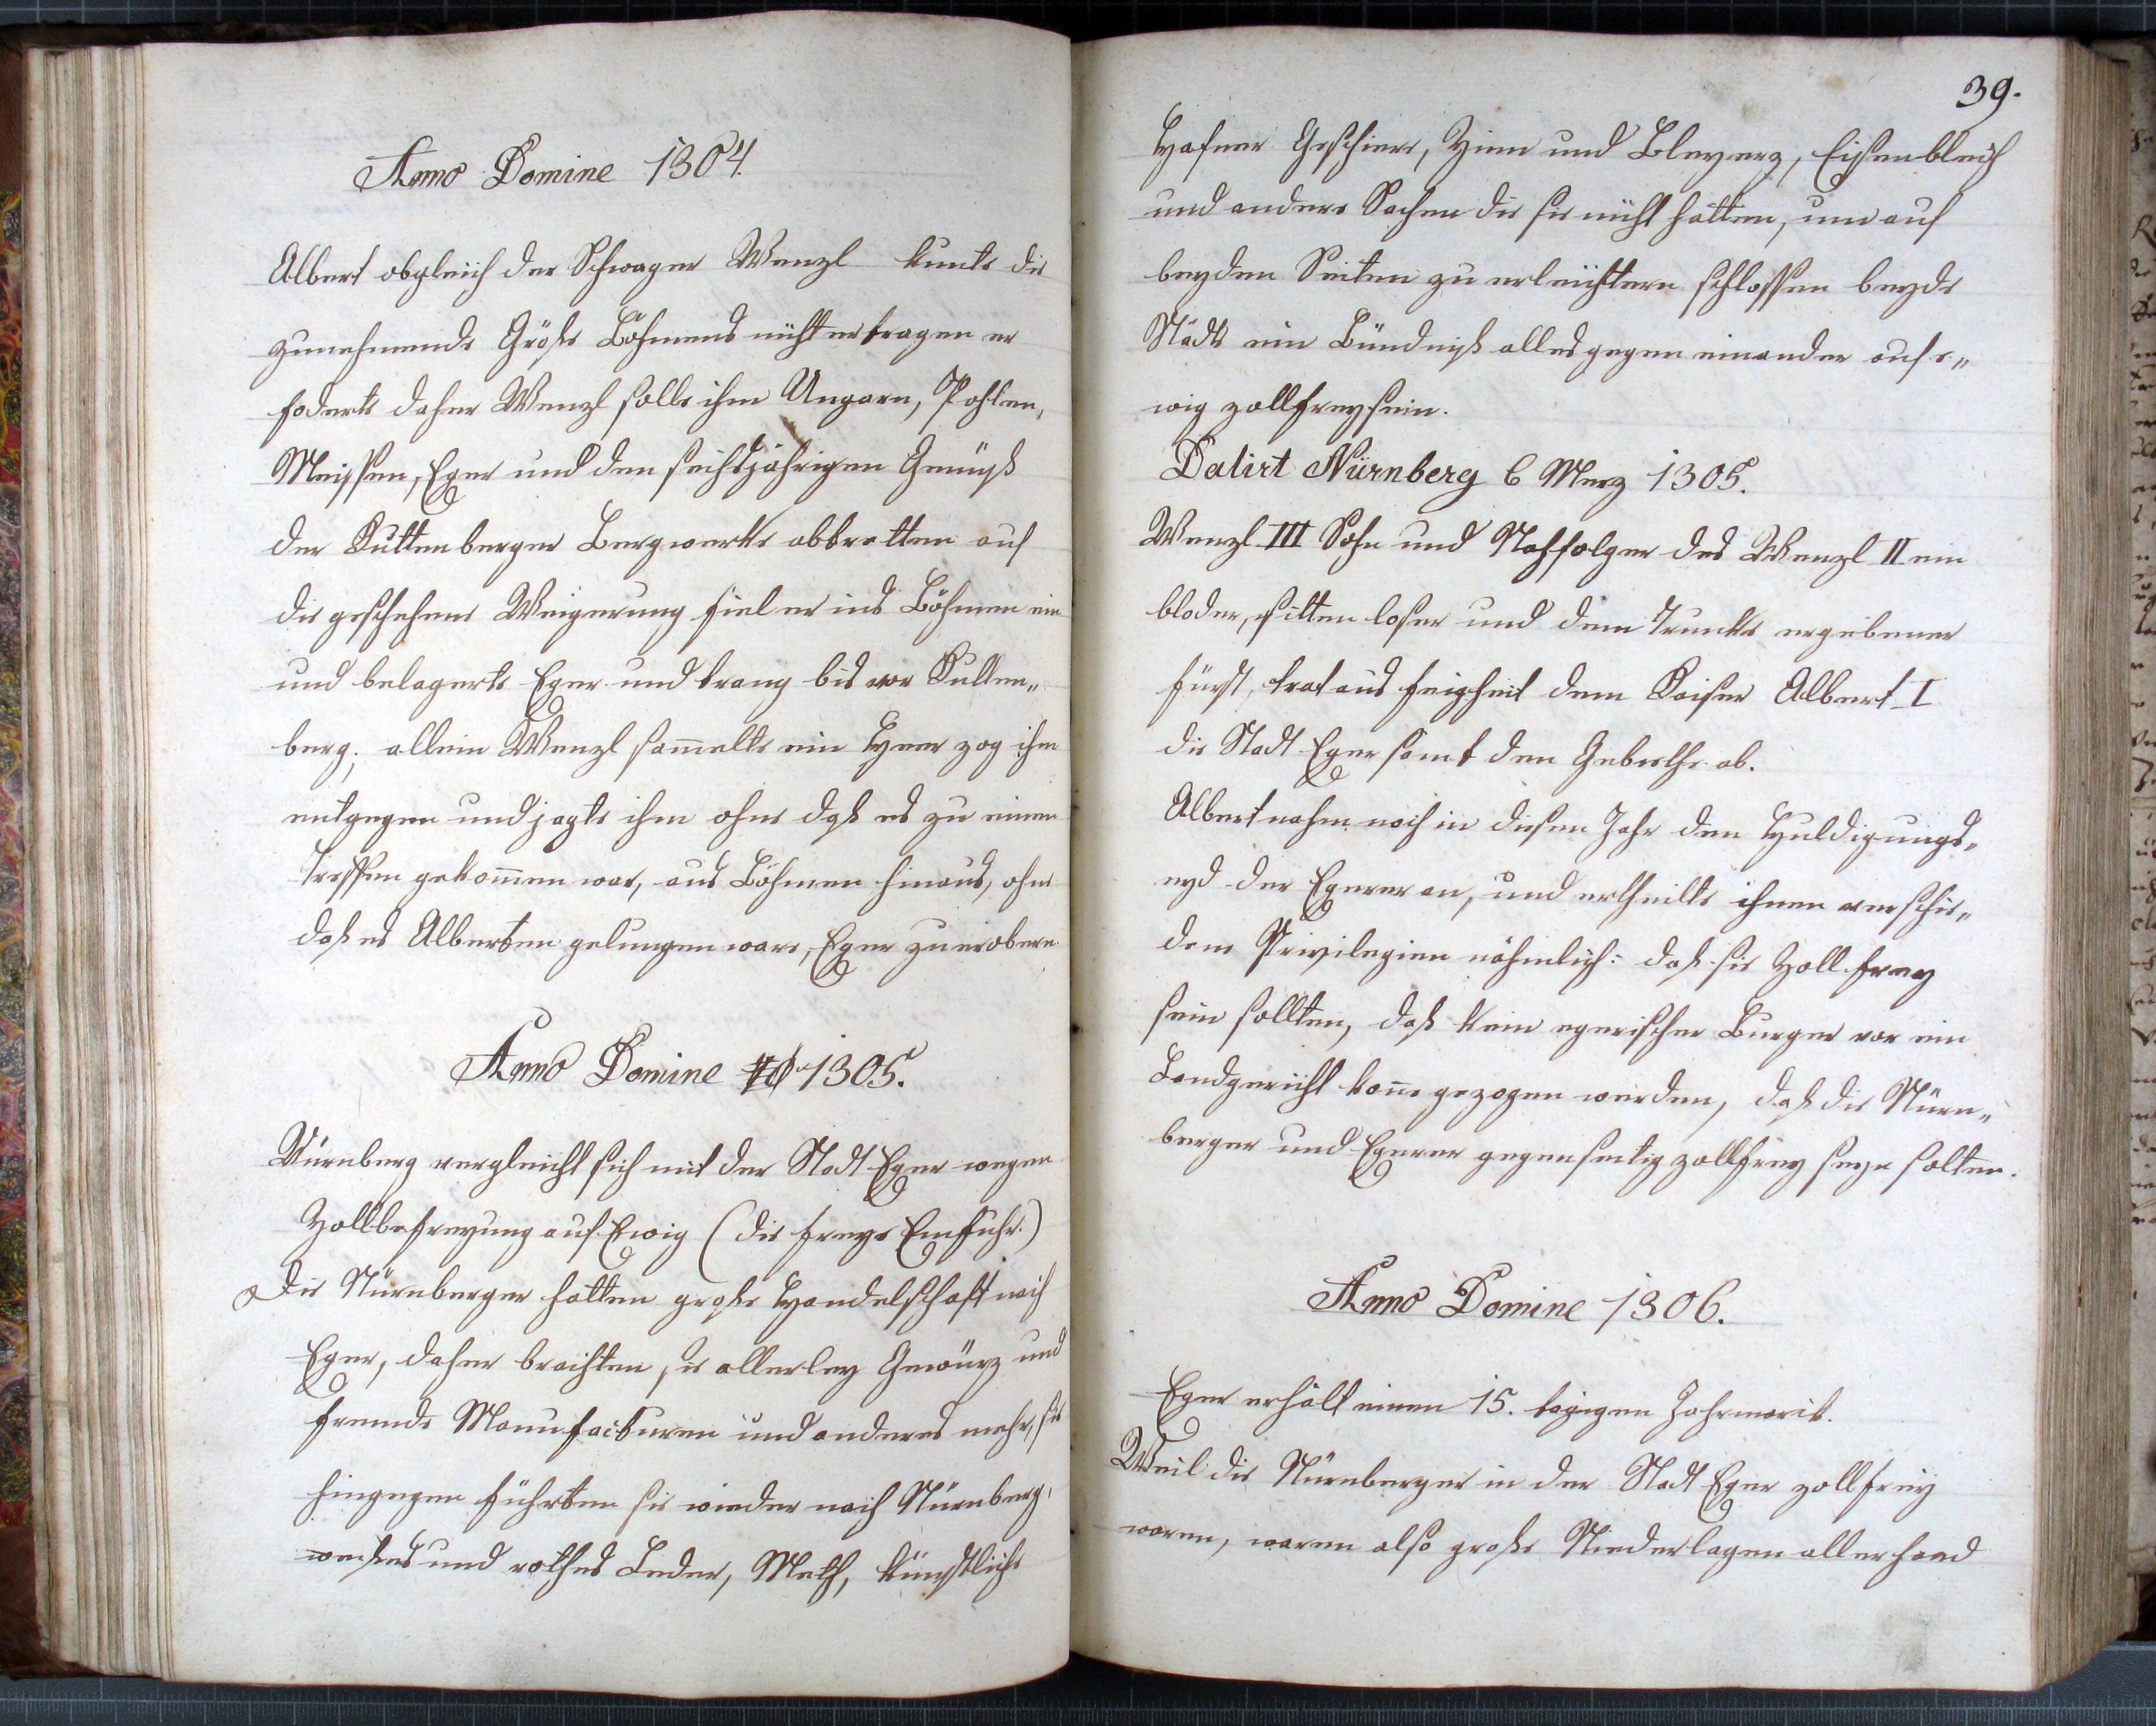 Anno Domine 1304.
Albert obgleich der Schwager Wenzl kunte die
zunehmende Größe Böhmens nicht ertragen er
foderte daher Wenzl solle ihm Ungarn, Pohlen,
Meissen, Eger und den sechsjährigen Genuß
der Kuttenberger Bergwerke abtretten auf
die geschehene Weigerung fiel er ins Böhmen ein
und belagerte Eger und trang bis vor Kutten„
berg; allein Wenzl sam̄elte ein Heer zog ihm
entgegen und jagte ihm ohne daß es zu einem
Treffen gekom̄en war, aus Böhmen hinaus, ohne
daß es Alberten gelungen ware, Eger zu erobern
Anno Domine 1305.
Nürnberg vergleicht sich mit der Stadt Eger wegen
Zollbefreyung auf Ewig (die freye Einfuhr.)
Die Nürnberger hatten große Handelschaft nach
Eger, daher brachten sie allerley Gewürz und
fremde Manufacturen und anderes mehr, sie
hingegen führten sie wieder nach Nürnberg,
weißes und rothes Leder, Meth, künstliche
39.
Hafner Geschierr, Zinn und Bleyerz, Eisenblech
und andere Sachen die sie nicht hätten, um auf
beyden Seiten zu erleichtern schlossen beyde
Städte ein Bündniß alles gegen einander auf e„
wig zollfrey sein.
Datirt Nürnberg 6 Merz 1305.
Wenzl III Sohn und Nachfolger des Wenzl II ein
bloder, sittenloser und dem Trunke ergebener
Fürst, trat aus Feigheit dem Kaiser Albert I
die Stadt Eger samt dem Gebiethe ab.
Albert nahm noch in diesen Jahr den Huldigungs„
eyd der Egerer an, und ertheilte ihnen verschie„
dene Privilegien nähmlich: daß sie Zollfrey
sein sollten, daß kein egerischer Burger vor ein
Landgericht kon̄e gezogen werden, daß die Nürn„
berger und Egerer gegenseitig zollfrey seyn solten.
Anno Domine 1306.
Eger erhält einen 15. tagigen Jahrmarkt.
Weil die Nürnberger in der Stadt Eger zollfrey
waren, waren also große Niederlagen allerhand